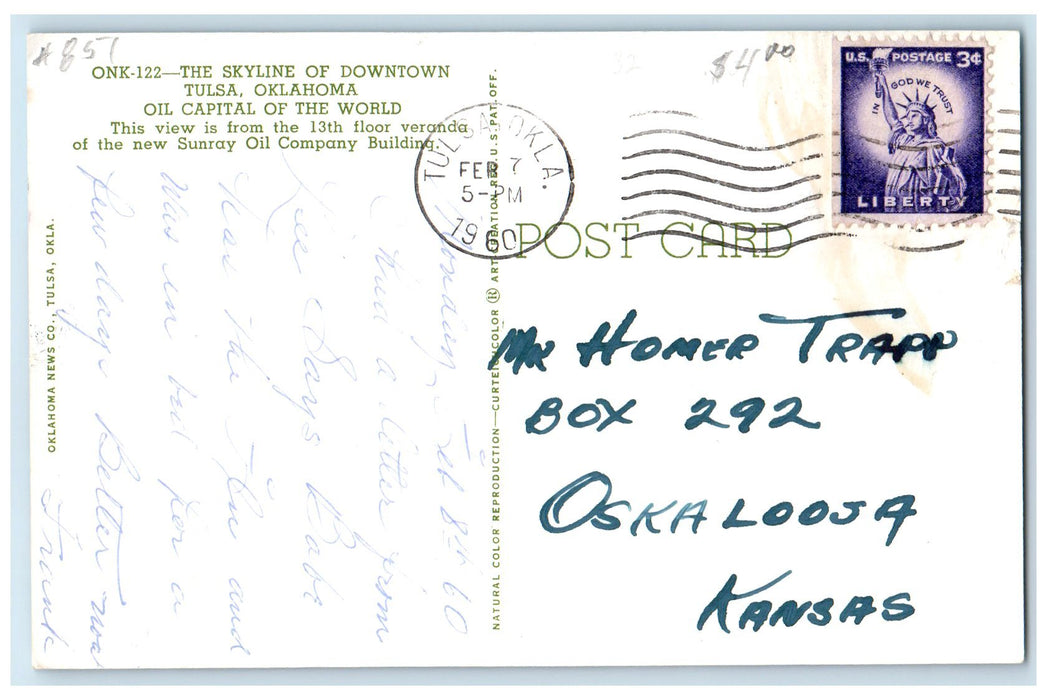 #851
$4.00
ONK-122—THE SKYLINE OF DOWNTOWN
TULSA, OKLAHOMA
OIL CAPITAL OF THE WORLD
This view is from the 13th floor veranda
of the new Sunray Oil Company Building.
OKLAHOMA NEWS CO., TULSA, OKLA.
Monday Feb 8th 60
I had a letter from
Lee Says Babe
Has the Flu and
Was in bed for a
few days Better now
Frank
NATURAL COLOR REPRODUCTION—CURTEICHCOLOR ® ART CREATION REG. U.S. PAT. OFF.
TULSA, OKLA.
FEB 7
5-PM
1960
U.S. POSTAGE 3¢
IN GOD WE TRUST
LIBERTY
POST CARD
Mr HOMER TRAPP
BOX 292
OSKALOOSA
KANSAS